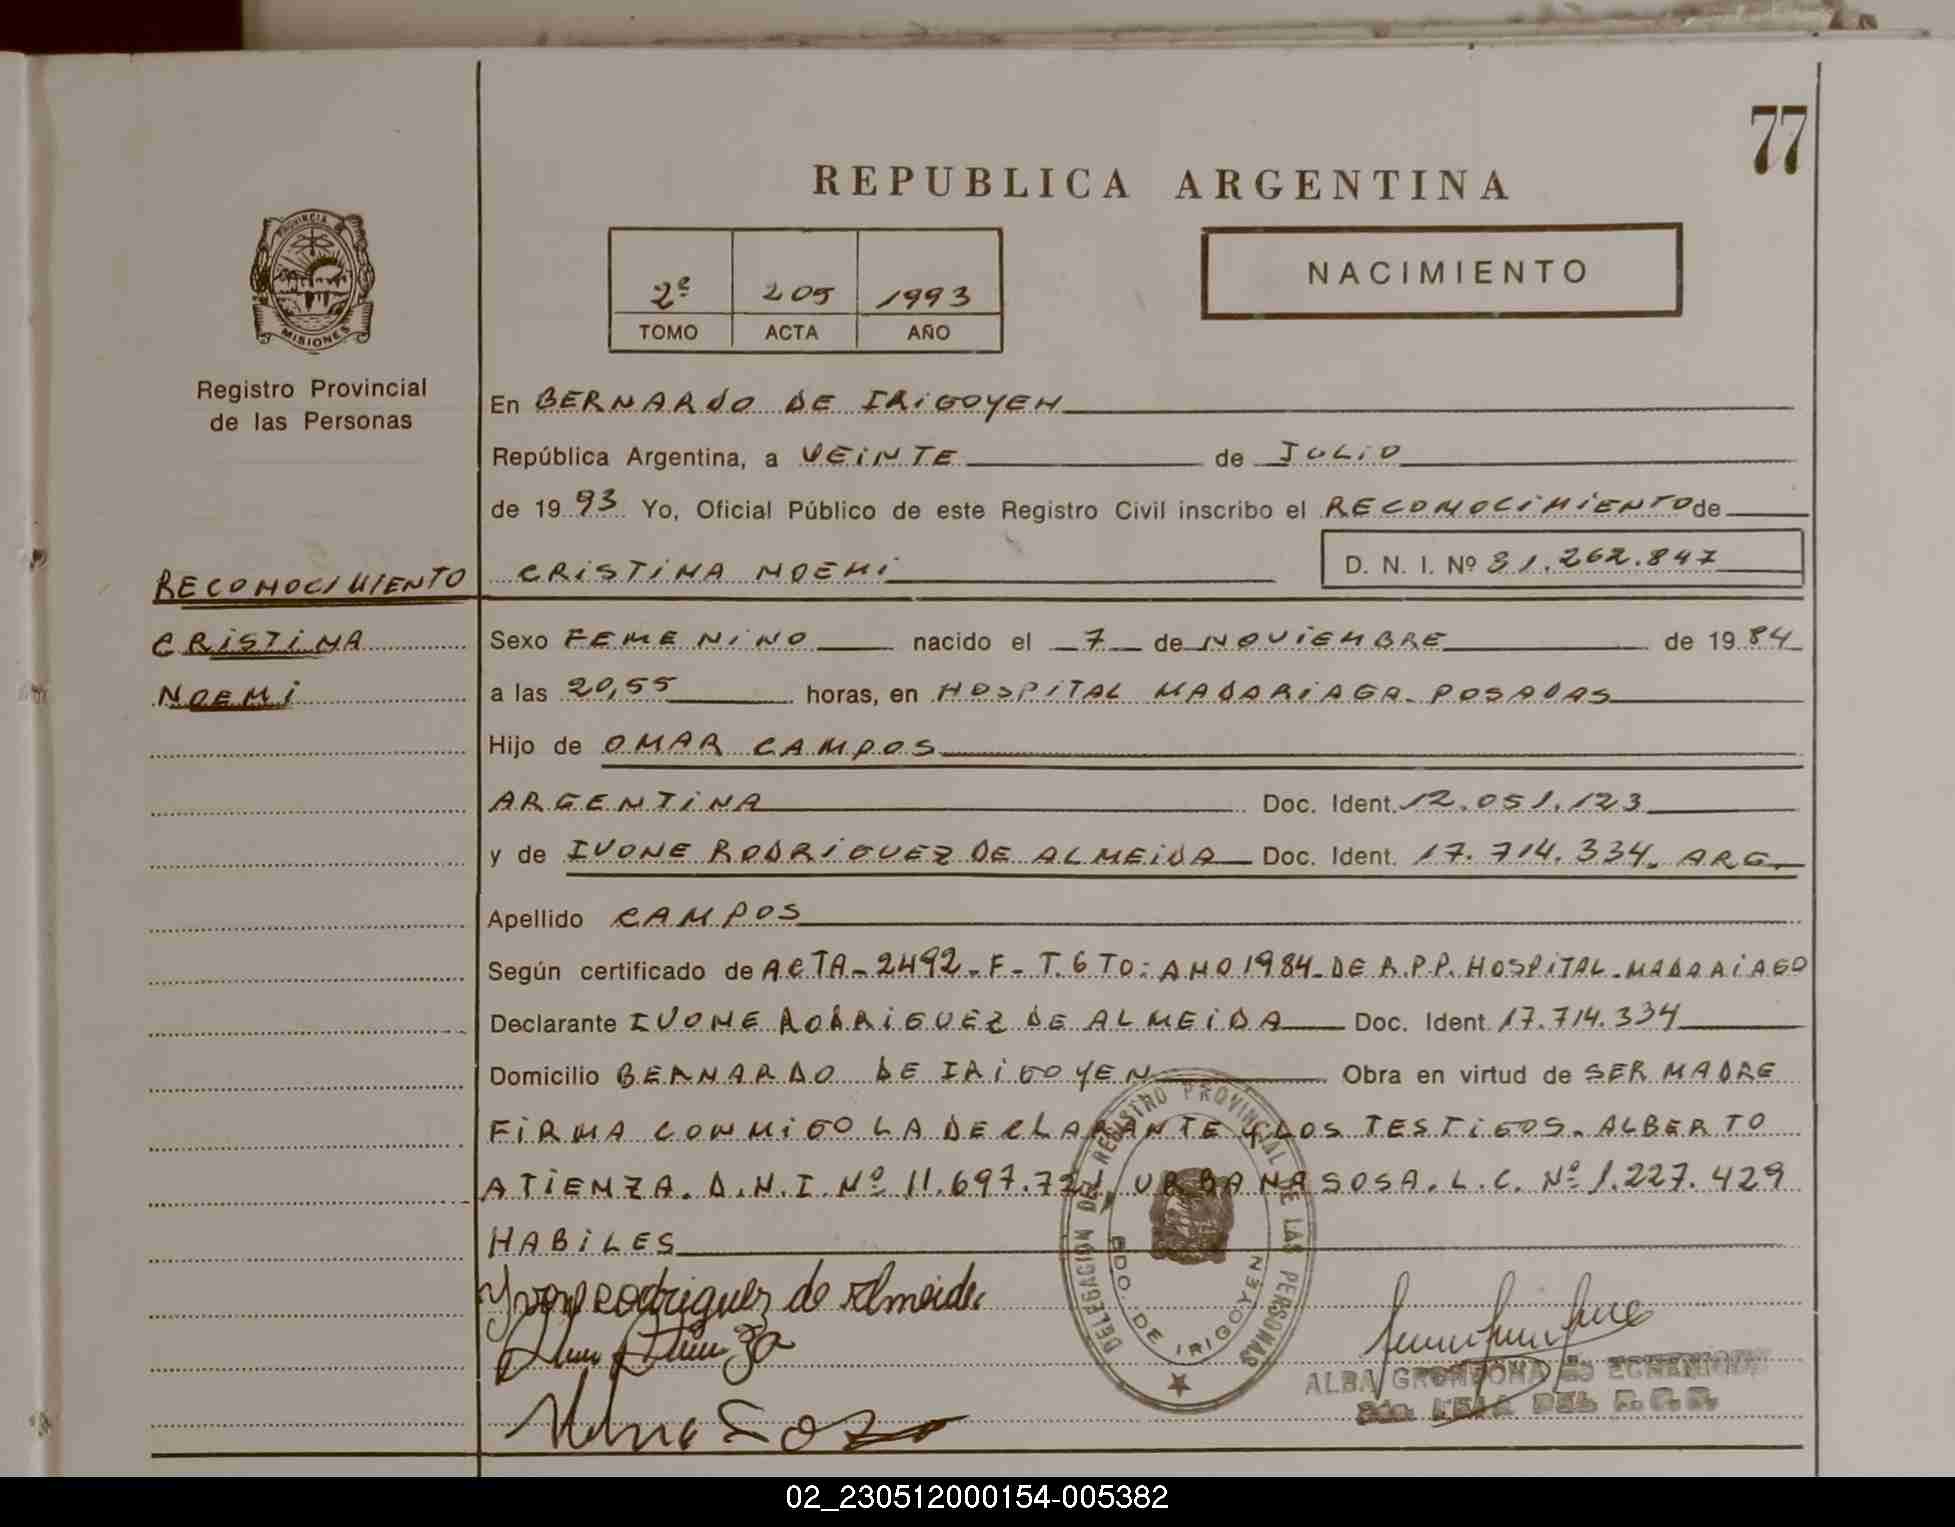 77
REPUBLICA ARGENTINA
PROVINCIA
MISIONES
Registro Provincial
de las Personas
2º 205 1993
TOMO ACTA AÑO
NACIMIENTO
En BERNARDO DE IRIGOYEN
República Argentina, a VEINTE de JULIO
de 1993 Yo, Oficial Público de este Registro Civil inscribo el RECONOCIMIENTO de
CRISTINA NOEMI D. N. I. Nº 31.262.847
RECONOCIMIENTO
CRISTINA
NOEMI
Sexo FEMENINO nacido el 7 de NOVIEMBRE de 1984
a las 20,55 horas, en HOSPITAL MADARIAGA-POSADAS
Hijo de OMAR CAMPOS
ARGENTINA Doc. Ident. 12.051.123
y de IVONE RODRIGUEZ DE ALMEIDA Doc. Ident. 17.714.334. ARG.
Apellido CAMPOS
Según certificado de ACTA-2492-F-T.6TO: ANO 1984-DE R.P.P. HOSPITAL-MADARIAGO
Declarante IVONE RODRIGUEZ DE ALMEIDA Doc. Ident. 17.714.334
Domicilio BERNARDO DE IRIGOYEN Obra en virtud de SER MADRE
FIRMA CONMIGO LA DECLARANTE Y LOS TESTIGOS. ALBERTO
ATIENZA. D.N.I. Nº 11.697.721 URBANA SOSA. L.C. Nº 1.227.429
HABILES
Yvone rodriguez de Almeida
DELEGACION DEL REGISTRO PROVINCIAL DE LAS PERSONAS
BDO. DE IRIGOYEN
ALBA GRONDONA de
DEL
02_230512000154-005382